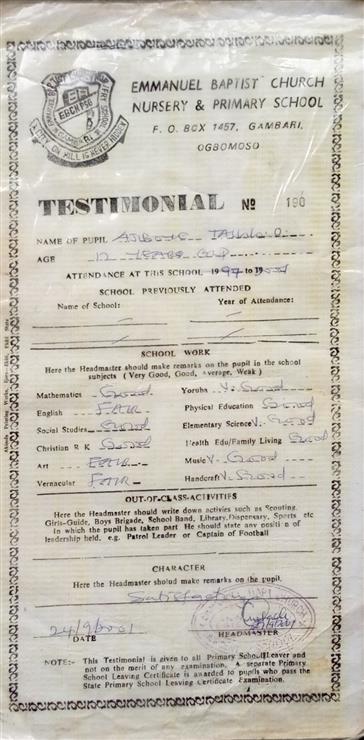 EMMANUEL BAPTIST CHURCH
NURSERY & PRIMARY SCHOOL
P. O. BOX 1457, GAMBARI,
OGBOMOSO
TESTIMONIAL № 190
NAME OF PUPIL
AGE 12 YEARS OLD
ATTENDANCE AT THIS SCHOOL 1997 to
SCHOOL PREVIOUSLY ATTENDED
Name of School: Year of Attendance:
SCHOOL WORK
Here the Headmaster should make remarks on the pupil in the school
subjects ( Very Good, Good, Average, Weak )
Mathematics Good Yoruba V. Good
English FAIR Physical Education Good
Social Studies Good Elementary Science V. Good
Christian R K Good Health Edu/Family Living Good
Art FAIR Music V. Good
Vernacular FAIR Handcraft V. Good
OUT-OF-CLASS-ACTIVITIES
Here the Headmaster should write down activies such as Scouting,
Girls-Guide, Boys Brigade, School Band, Library, Dispensary, Sports etc
in which the pupil has taken part. He should state any position of
leadership held. e.g. Patrol Leader or Captain of Football
CHARACTER
Here the Headmaster sholud make remarks on the pupil.
Satisfactory
24/9/2001
DATE HEADMASTER
NOTE:- This Testimonial is given to all Primary School Leaver and
not on the merit of any examination. A separate Primary
School Leaving Certificate is awarded to pupils who pass the
State Primary School Leaving Certificate Examination.